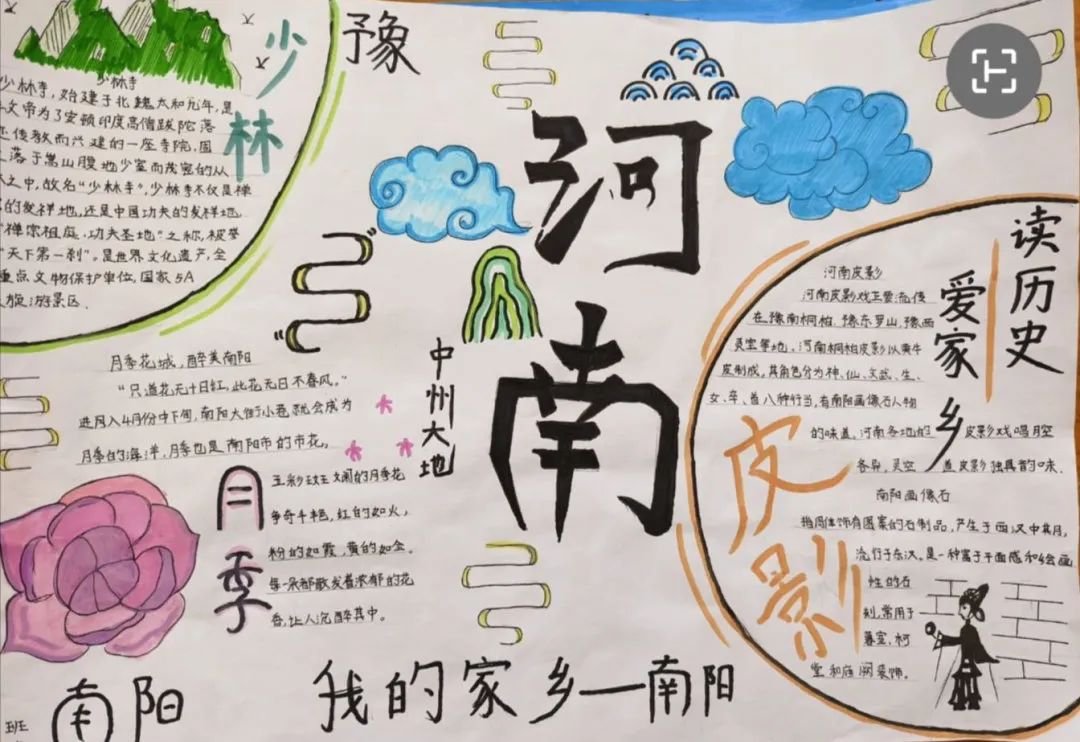 豫
少林
少林寺
少林寺，始建于北魏太和九年，是
文帝为了安顿印度高僧跋陀落
传教而兴建的一座寺院，因
落于嵩山腹地少室而茂密的丛
之中，故名"少林寺"，少林寺不仅是禅
的发祥地，还是中国功夫的发祥地
"禅宗祖庭，功夫圣地"之称，被誉
"天下第一刹"。是世界文化遗产，全
重点文物保护单位，国家5A
旅游景区.
河南
中州大地
月季花城，醉美南阳
"只道花无十日红，此花无日不春风。"
进月入4月份中下旬，南阳大街小巷就会成为
月季的海洋，月季也是南阳市的市花。
月季
五彩斑斓的月季花
争奇斗艳，红的如火，
粉的如霞，黄的如金。
每一朵都散发着浓郁的花
香，让人沉醉其中。
读历史
爱家乡
皮影
河南皮影
河南皮影戏主要流传
在豫南桐柏、豫东罗山、豫西
灵宝等地。河南桐柏皮影以黄牛
皮制成，其角色分为神、仙、文武、生、
女、辛、首八种行当，有南阳画像石人物
的味道。河南各地的皮影戏唱腔
各异，灵宝道皮影独具韵味.
南阳画像石
指周体饰有图案的石制品，产生于西汉中其月，
流行于东汉。是一种富于平面感和绘画
性的石
刻，常用于
墓室、祠
堂和庙阙装饰。
我的家乡—南阳
南阳
班